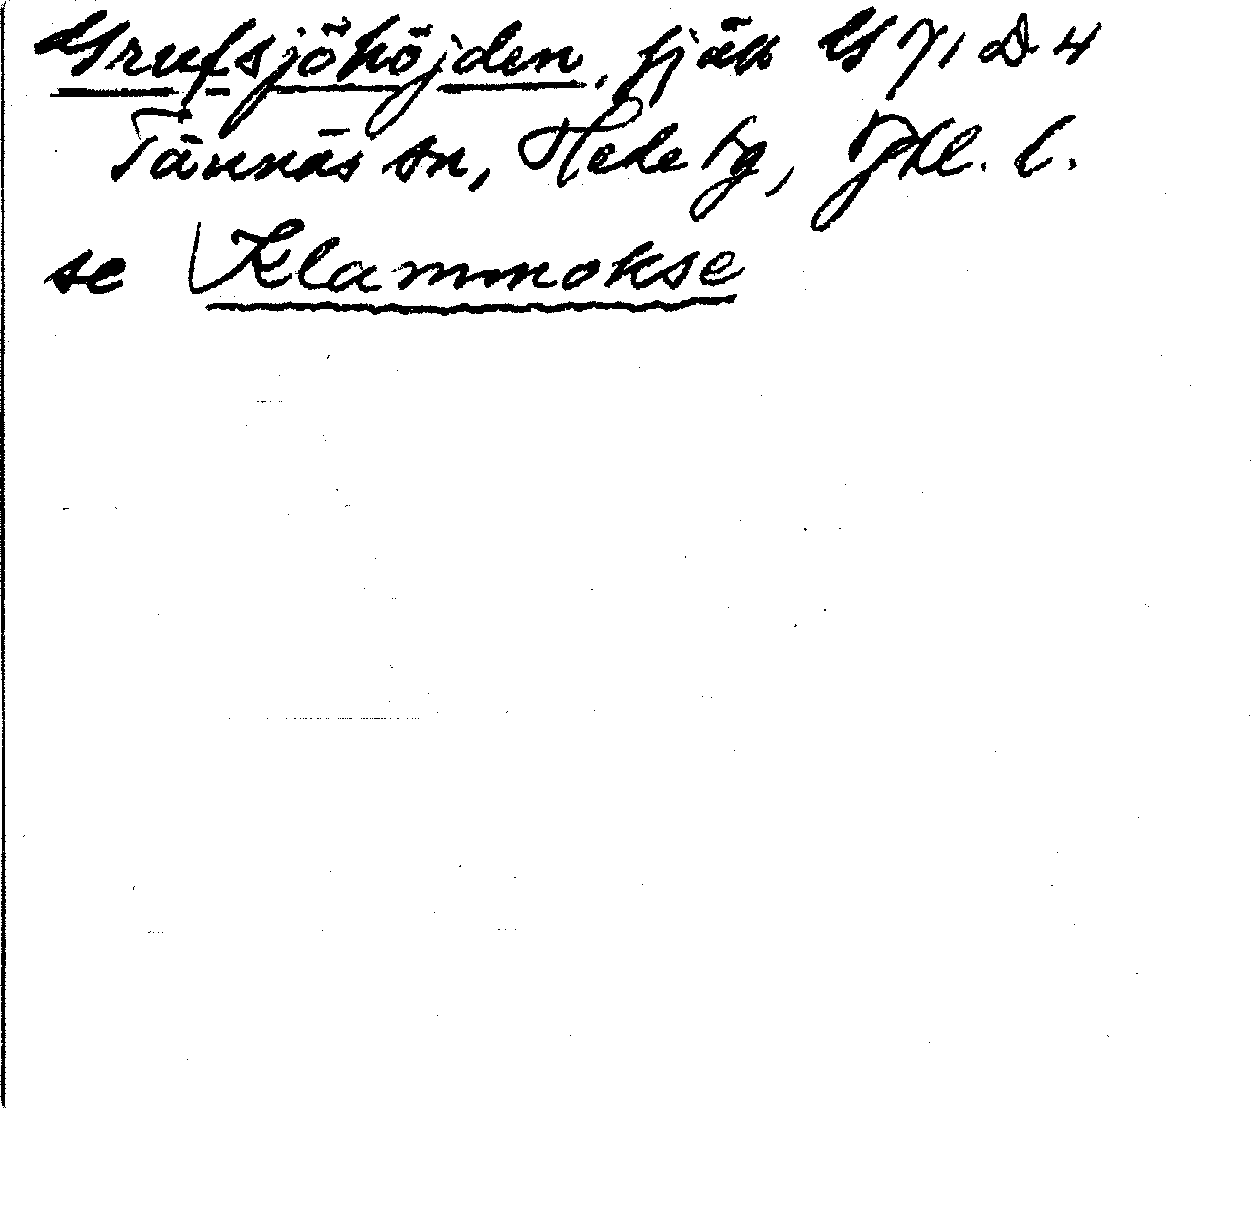 Grufsjöhöjden, fjäll G 71 D 4
Tännäs sn, Hede tg, Jhl. l.
se Klammokse